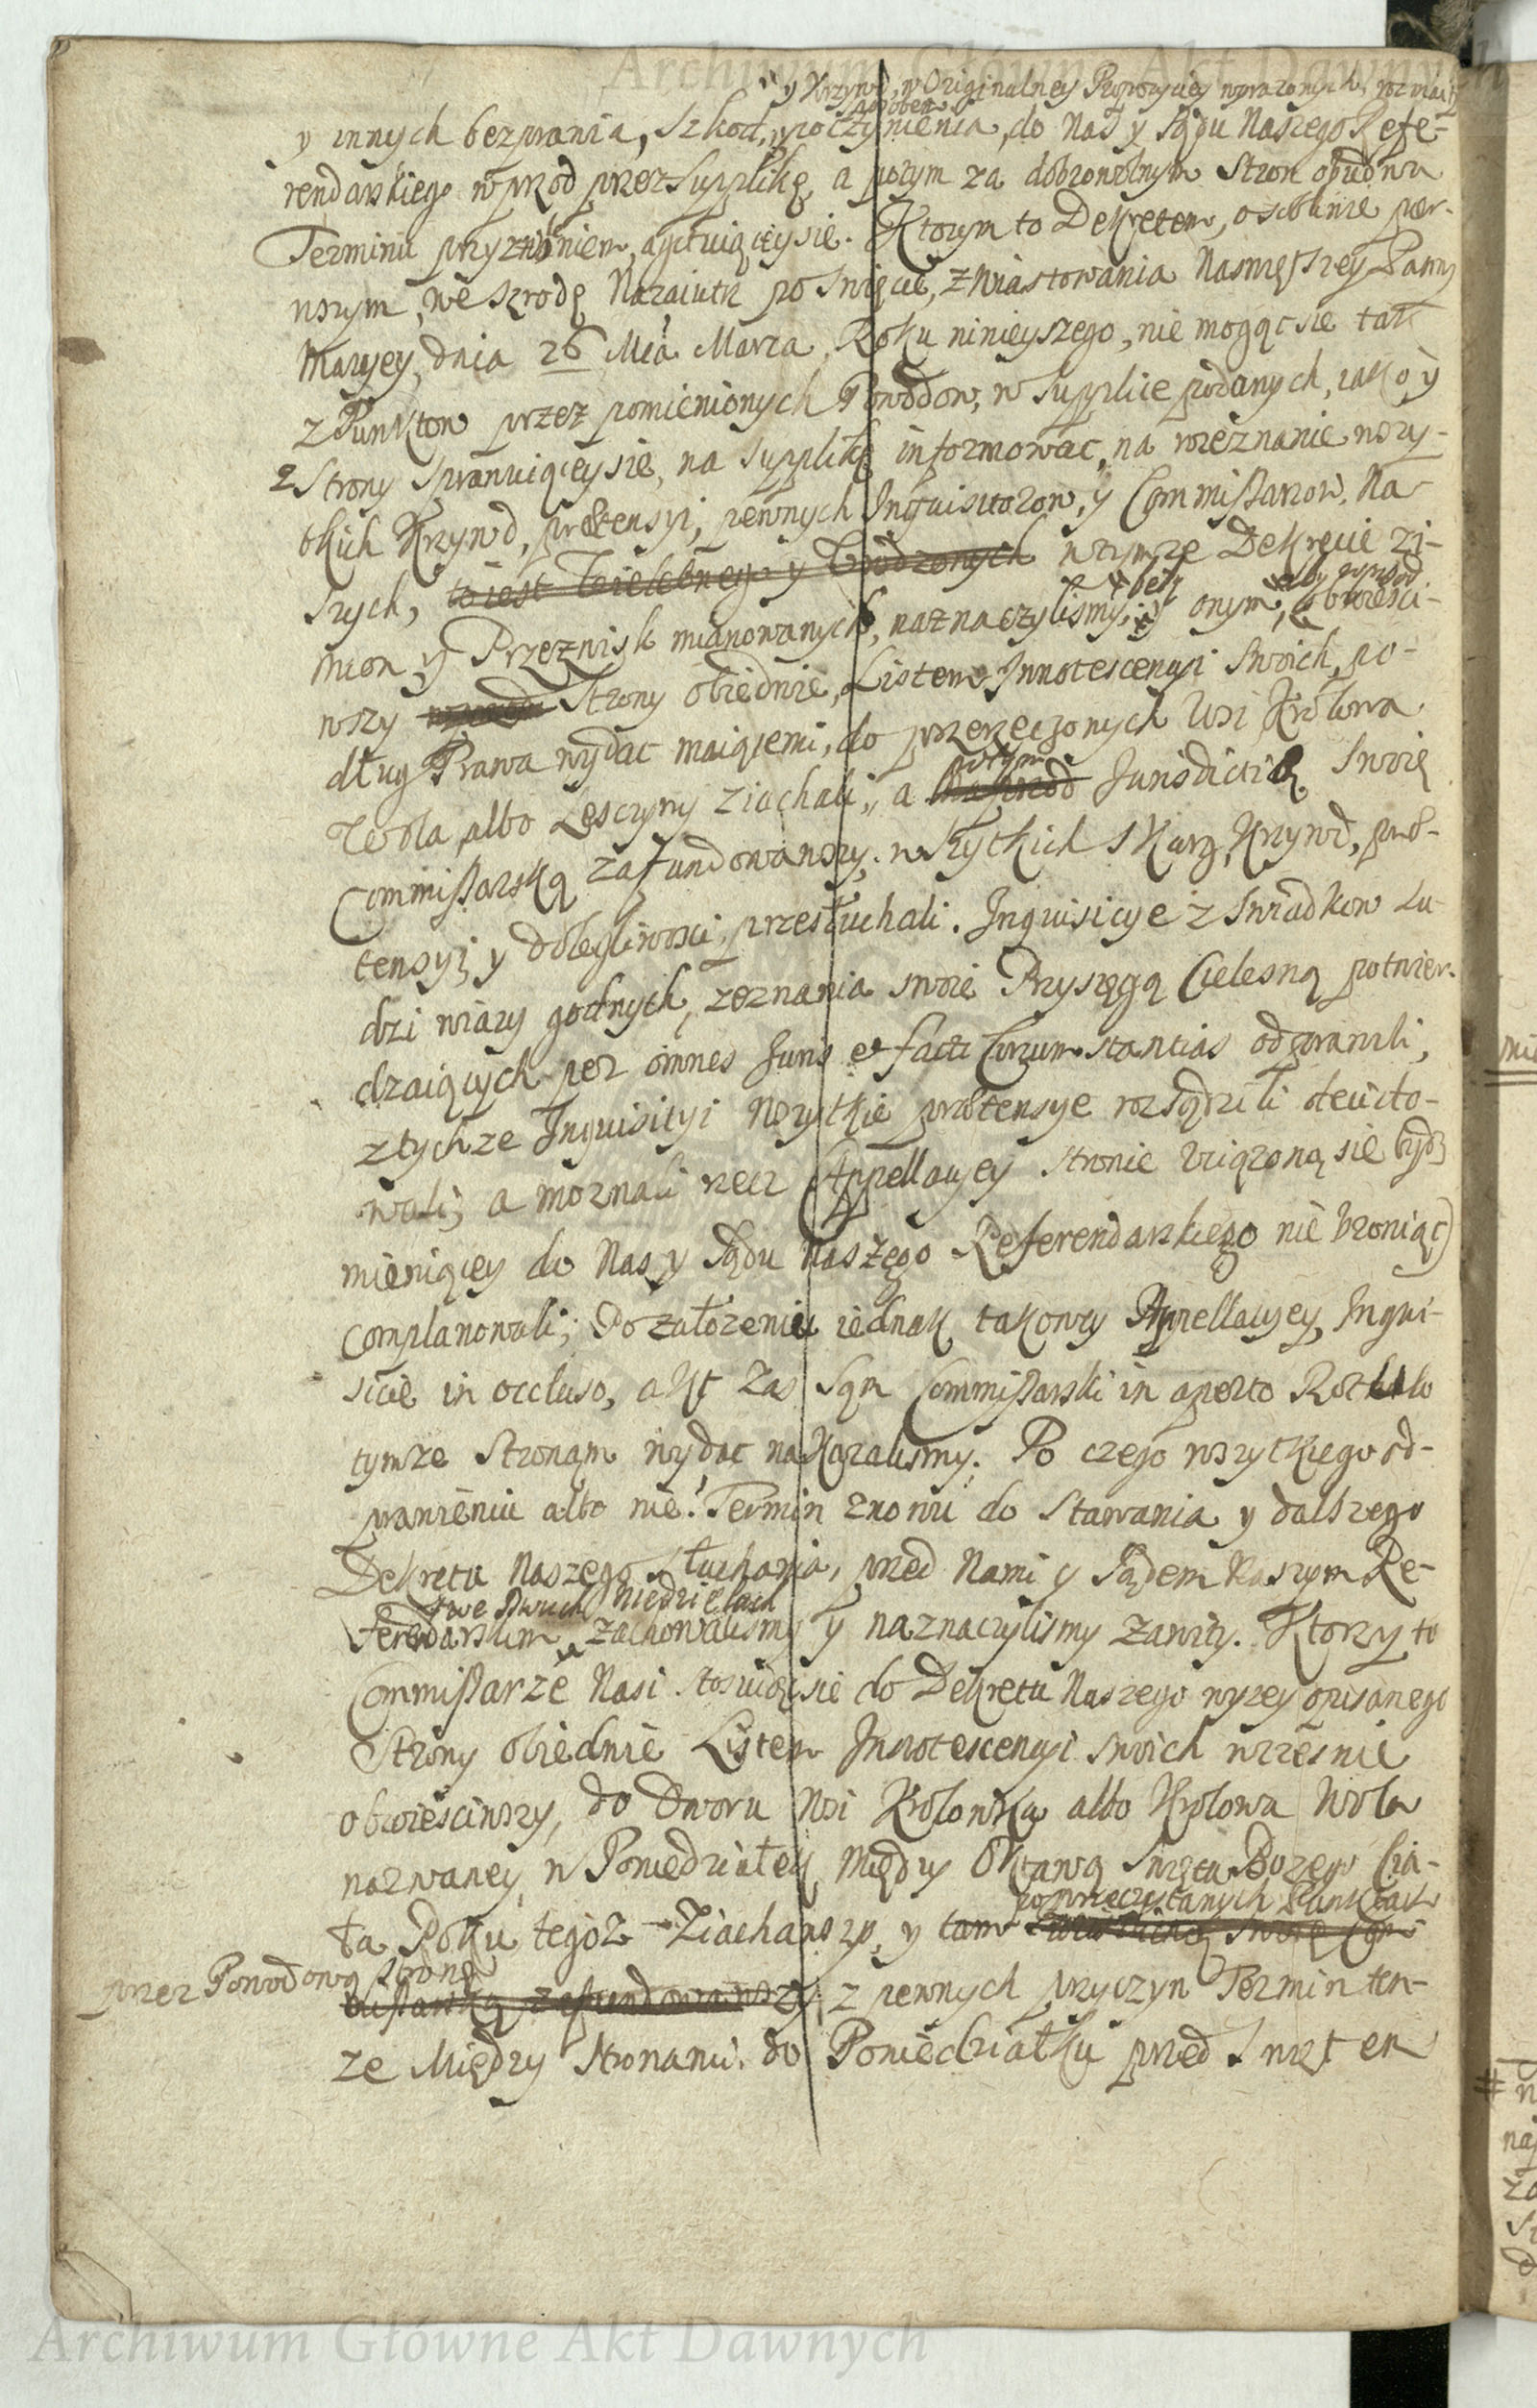 Archiwum Główne Akt Dawnych
y Krzywd, w Originalney Propozyciey wyrazonych, rozmaitych
sposobem
y innych bezprawia, Szkod, y poczynienia, do Nas y Sądu Naszego Refe-
rendarskiego w przod przez Supplikę, a potym za dobrowolnym Stron obudwu
Terminu przyznaniem, agituiącey sie. Ktorym to Dekretem, oczewiscie pier-
wszym, we Szrodę Nazaiutrz po Swięcie, Zwiastowania Naswiętszey Panny
Maryey, dnia 26 Mca Marca, Roku ninieyszego, nie mogąc sie tak
z Punktow przez pomienionych Powodow, w Supplice podanych, iako y
z Strony Sprawuiącey sie, na Supplikę informowac, na roeznanie wszy-
tkich Krzywd, prætensyi, pewnych Inquisitorow, y Commissarzow, Na-
szych, to iest Wielebnego y Urodzonych w tymze Dekrecie zi-
mion y Przezwisk mianowanych, naznaczylismy; y onym, aby wprzod obwiesci-
wszy Strony obiedwie, Listem Innotescencyi Swoich, po-
dług Prawa wydac maiącemi, do przerzeczonych Wsi Krolowa
Wola, albo Lesczyny ziachali, a potym Naprzod Jurisdictią Swoię
Commissarską zafundowawszy, wszytkich Skarg, Krzywd, præ-
tensyi, y dolegliwosci, przesłuchali. Inquisicye z Swiadkow Lu-
dzi wiary godnych, zeznania swoie Przysęgą Cielesną potwier-
dzaiących per omnes Juris et facti Circumstantias odprawili,
z tychze Inquisityi wszytkie prætensye rozsądzili decido-
wali; a moznali rzecz Appellacyey Stronie Uciązoną się bydz
mieniącey do Nas y Sądu Naszego Referendarskiego nie broniąc
complanowali; Po założeniu iednak takowey Appellacyey, Inqui-
sicie in occluso, akt zas Sam Commissarski in aperto Rotulo
tymze Stronam wydac nakazalismy. Po czego wszytkiego od-
prawieniu albo nie: Termin znowu do Stawania y dalszego
Dekretu Naszego Słuchania, przed Nami y Sądem Naszym Re-
we dwuch Niedzielach
ferendarskim, zachowalismy y naznaczylismy zawity. Ktorzy to
Commissarze Nasi stosuiąc sie do Dekretu Naszego wyzey opisanego
Strony obiedwie Listem Innotescencyi swoich wczesnie
obwiesciwszy, do Dworu Wsi Krolowka albo Krolowa Wola
nazwaney, w Poniedziałek, Między Oktawą Swięta Bozego Cia-
po przeczytanych Punktach
ła Roku tegoz Ziachawszy, y tam Jurisdictią Swoię Com
przez Powodową stronę
missarską zafundowawszy, z pewnych przyczyn Termin ten-
ze Między Stronami do Poniedziałku przed Swięten
Archiwum Główne Akt Dawnych